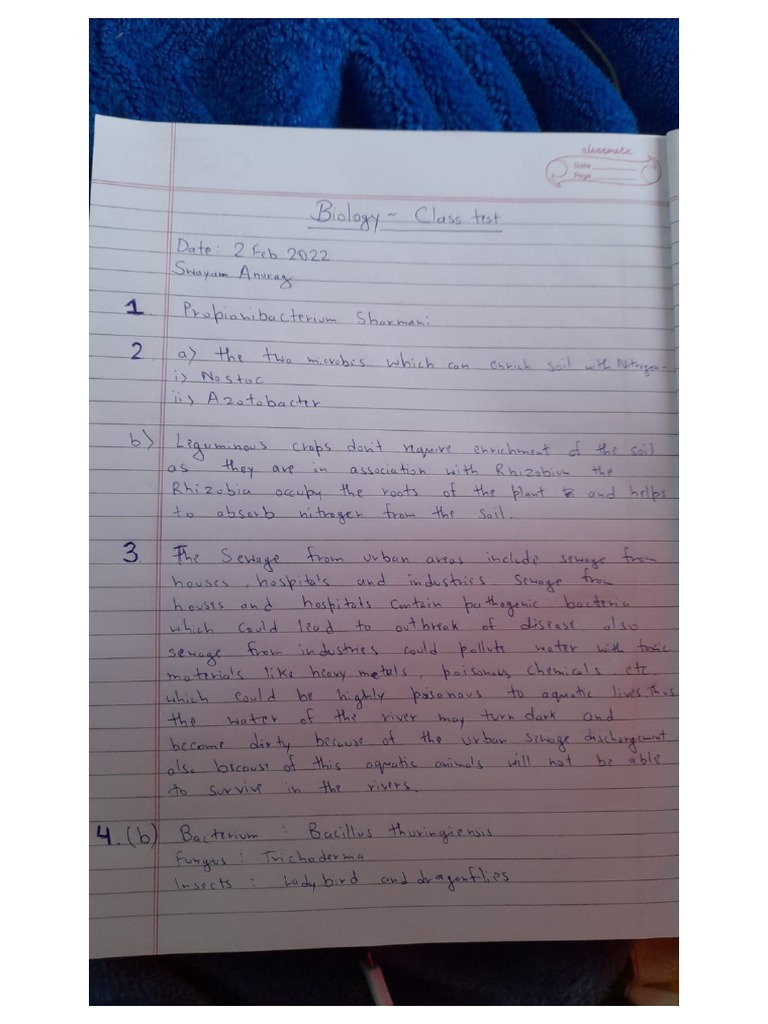 classmate
Date
Page
Biology - Class test
Date: 2 Feb 2022
Swayam Anurag
1 Propionibacterium Sharmani
2 a) the two microbes which can enrich soil with Nitrogen-
i) Nostoc
ii) Azotobacter
b) Leguminous crops don't require enrichment of the soil
as they are in association with Rhizobium the
Rhizobia occupy the roots of the plant and helps
to absorb nitrogen from the soil.
3 The Sewage from urban areas include sewage from
houses, hospitals and industries. Sewage from
houses and hospitals contain pathogenic bacteria
which could lead to outbreak of disease also
sewage from industries could pollute water with toxic
materials like heavy metals, poisonous chemicals etc
which could be highly poisonous to aquatic lives. Thus
the water of the river may turn dark and
become dirty because of the urban sewage dischargement
also because of this aquatic animals will not be able
to survive in the rivers.
4. (b) Bacterium : Bacillus thuringiensis
Fungus : Trichoderma
Insects : Ladybird and dragonflies